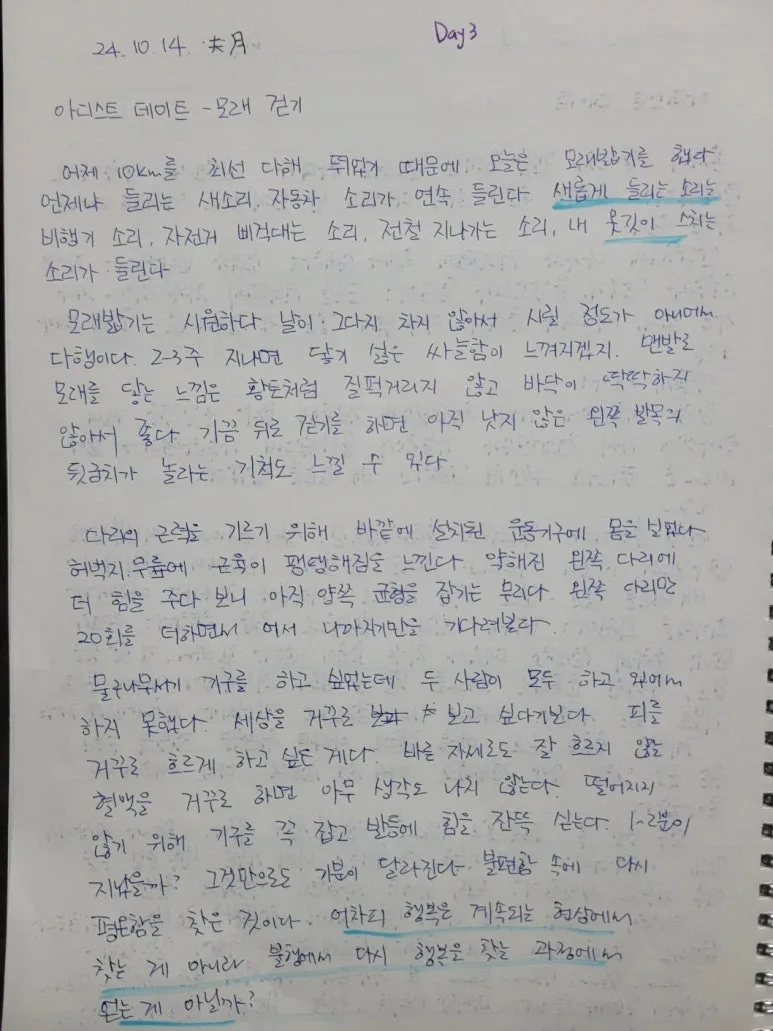 Day 3
24. 10. 14. 月
아티스트 데이트 - 모래 걷기
어제 10km를 최선 다해 뛰었기 때문에 오늘은 모래밟기를 했다
언제나 들리는 새소리, 자동차 소리가 연속 들린다. 새롭게 들리는 소리는
비행기 소리, 자전거 삐걱대는 소리, 전철 지나가는 소리, 내 옷깃이 스치는
소리가 들린다
모래밟기는 시원하다 날이 그다지 차지 않아서 시릴 정도가 아니어서
다행이다. 2-3주 지나면 닿기 싫은 싸늘함이 느껴지겠지. 맨발로
모래를 닿는 느낌은 황토처럼 질퍽거리지 않고 바닥이 딱딱하지
않아서 좋다 가끔 뒤로 걷기를 하면 아직 낫지 않은 왼쪽 발목과
뒷굼치가 놀라는 기척도 느낄 수 있다.
다리의 근력을 기르기 위해 바깥에 설치된 운동기구에 몸을 실었다
허벅지, 무릎에 근육이 팽팽해짐을 느낀다. 약해진 왼쪽 다리에
더 힘을 주다 보니 아직 양쪽 균형을 잡기는 무리다. 왼쪽 다리만
20회를 더하면서 어서 나아지기만을 기다려본다.
물구나무서기 기구를 하고 싶었는데 두 사람이 모두 하고 있어서
하지 못했다. 세상을 거꾸로 보고 싶다기보다. 피를
거꾸로 흐르게 하고 싶은 게다. 바른 자세로도 잘 흐르지 않는
혈액을 거꾸로 하면 아무 생각도 나지 않는다. 떨어지지
않기 위해 기구를 꼭 잡고 발등에 힘을 잔뜩 싣는다. 1-2분이
지났을까? 그것만으로도 기분이 달라진다. 불편함 속에 다시
평온함을 찾은 것이다. 어차피 행복은 계속되는 현상에서
찾는 게 아니라 불행에서 다시 행복을 찾는 과정에서
얻는 게 아닐까?